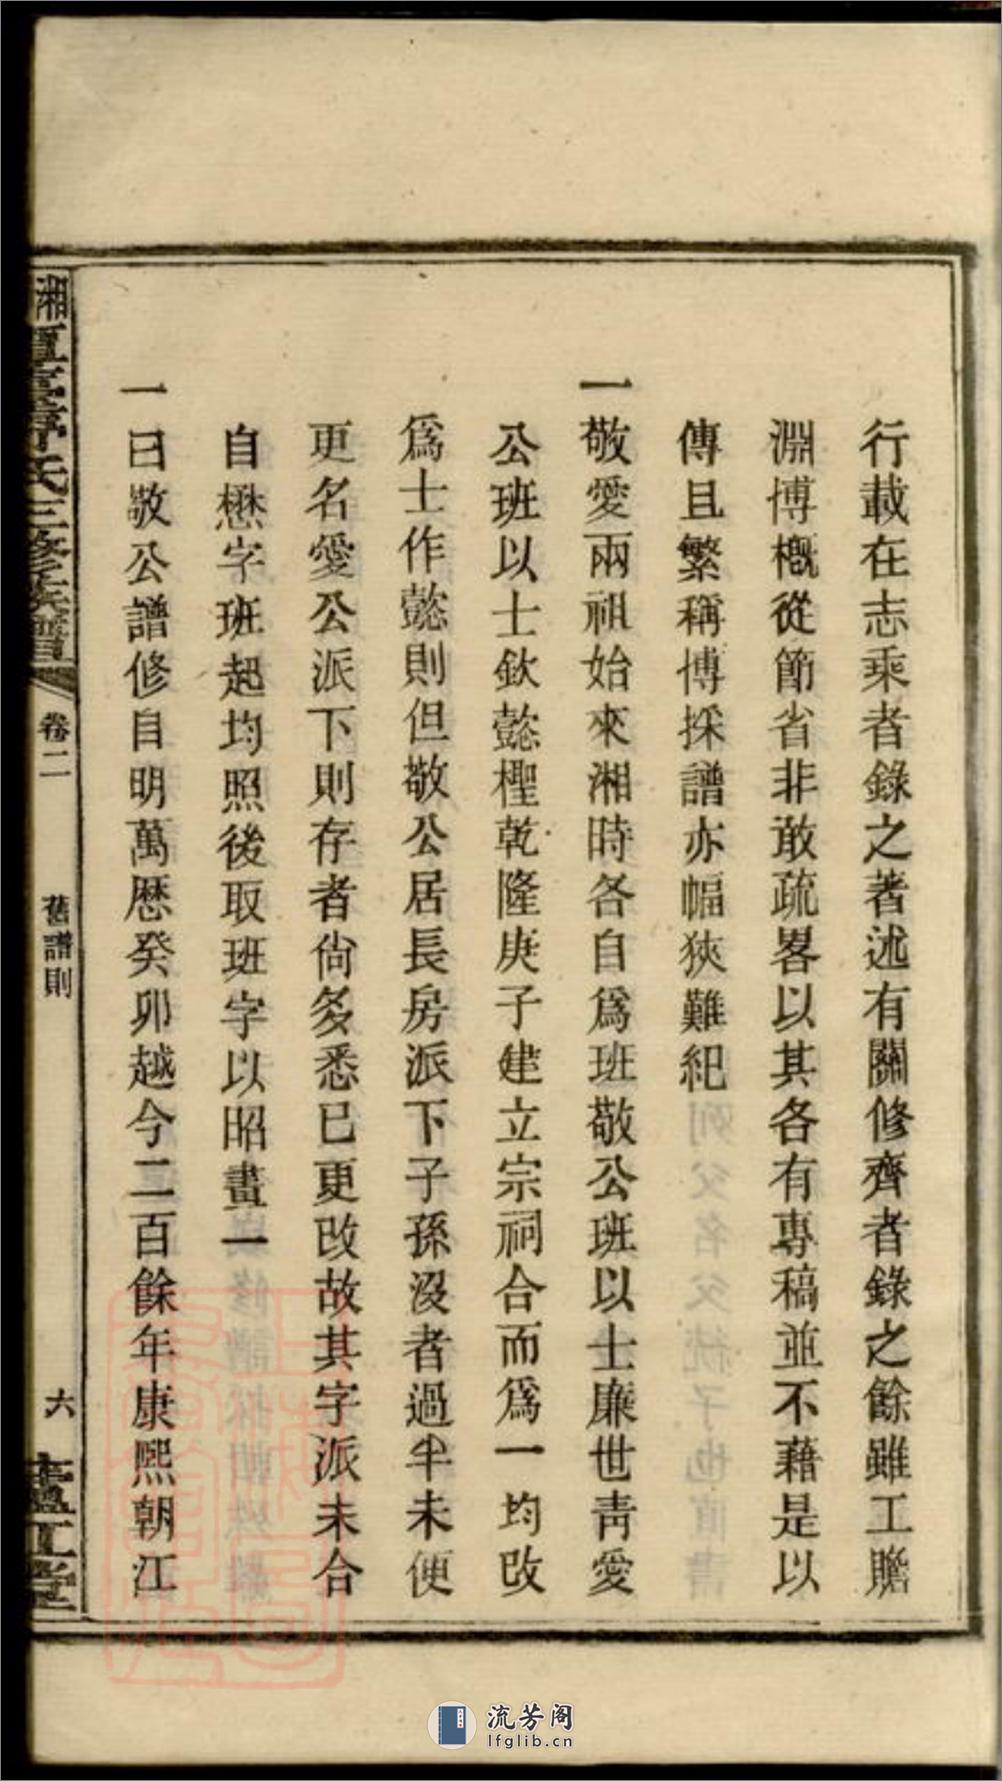 行載在志乘者錄之著述有關修齊者錄之餘雖工贍
淵博概從節省非敢疏畧以其各有專稿並不藉是以
傳且繁稱博採譜亦幅狹難紀
一敬愛兩祖始來湘時各自爲班敬公班以士廉世靑愛
公班以士欽懿檉乾隆庚子建立宗祠合而爲一均改
爲士作懿則但敬公居長房派下子孫沒者過半未便
更名愛公派下則存者尙多悉已更改故其字派未合
自懋字班起均照後取班字以昭畫一
一曰敬公譜修自明萬厯癸卯越今二百餘年康熙朝江
湘
氏三修族譜
卷二
舊譜則
六
廬江堂
流芳阁
lfglib.cn